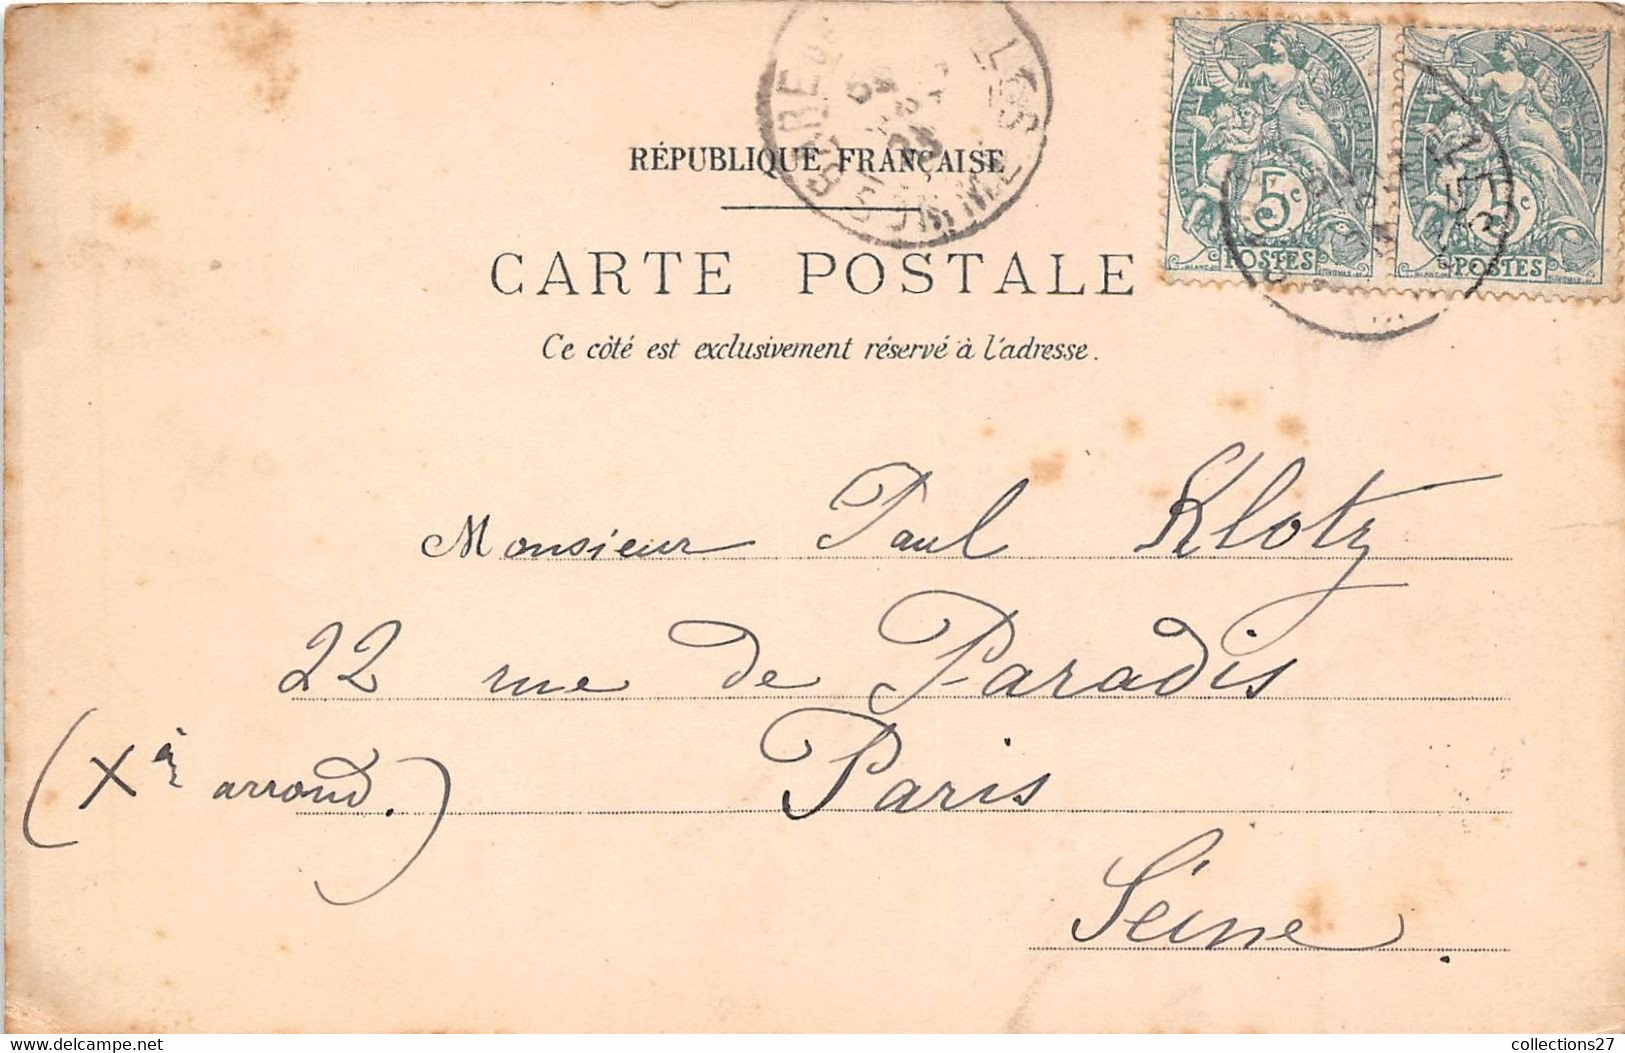 RÉPUBLIQUE FRANÇAISE
CARTE POSTALE
Ce côté est exclusivement réservé à l'adresse.
RÉPUBLIQUE FRANÇAISE
5c
POSTES
RÉPUBLIQUE FRANÇAISE
5c
POSTES
Monsieur Paul Klotz
22 rue de Paradis
(Xe arrond.) Paris
Seine.
collections27